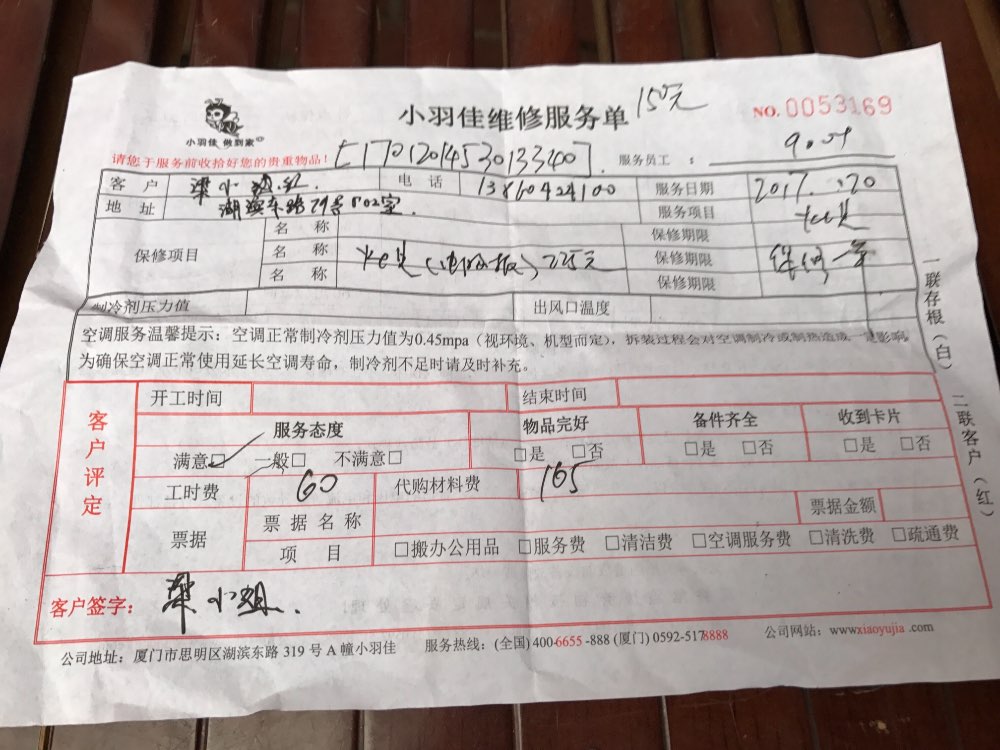 小羽佳 做到家
小羽佳维修服务单
150元
NO.0053169
请您于服务前收拾好您的贵重物品！
服务员工：
客户 梁小姐 电话 13860424100 服务日期 2017. .20
地址 湖滨东路 号 802室. 服务项目
保修项目 名称 保修期限
名称 225元 保修期限 保修一年
名称 保修期限
制冷剂压力值 出风口温度
空调服务温馨提示：空调正常制冷剂压力值为0.45mpa（视环境、机型而定），拆装过程会对空调制冷或制热造成一定影响
为确保空调正常使用延长空调寿命，制冷剂不足时请及时补充。
一联存根（白） 二联客户（红）
客户评定
开工时间 结束时间
服务态度 物品完好 备件齐全 收到卡片
满意□ 一般□ 不满意□ □是 □否 □是 □否 □是 □否
工时费 60 代购材料费 165
票据 票据名称 票据金额
项目 □搬办公用品 □服务费 □清洁费 □空调服务费 □清洗费 □疏通费
客户签字： 梁小姐.
公司地址：厦门市思明区湖滨东路 319 号 A 幢小羽佳 服务热线：(全国) 400-6655-888 (厦门) 0592-5178888 公司网站：www.xiaoyujia.com